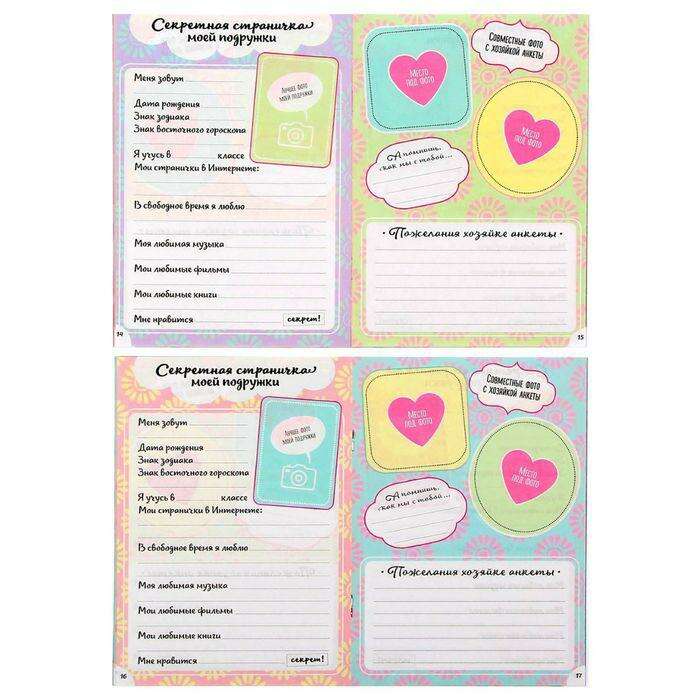 Секретная страничка
моей подружки
Меня зовут
Лучшее фото
моей подружки
Дата рождения
Знак зодиака
Знак восточного гороскопа
Я учусь в классе
Мои странички в Интернете:
В свободное время я люблю
Моя любимая музыка
Мои любимые фильмы
Мои любимые книги
Мне нравится секрет!
14
Совместные фото
с хозяйкой анкеты
Место
под фото
Место
под фото
А помнишь,
как мы с тобой...
· Пожелания хозяйке анкеты ·
15
Секретная страничка
моей подружки
Меня зовут
Лучшее фото
моей подружки
Дата рождения
Знак зодиака
Знак восточного гороскопа
Я учусь в классе
Мои странички в Интернете:
В свободное время я люблю
Моя любимая музыка
Мои любимые фильмы
Мои любимые книги
Мне нравится секрет!
16
Совместные фото
с хозяйкой анкеты
Место
под фото
Место
под фото
А помнишь,
как мы с тобой...
· Пожелания хозяйке анкеты ·
17